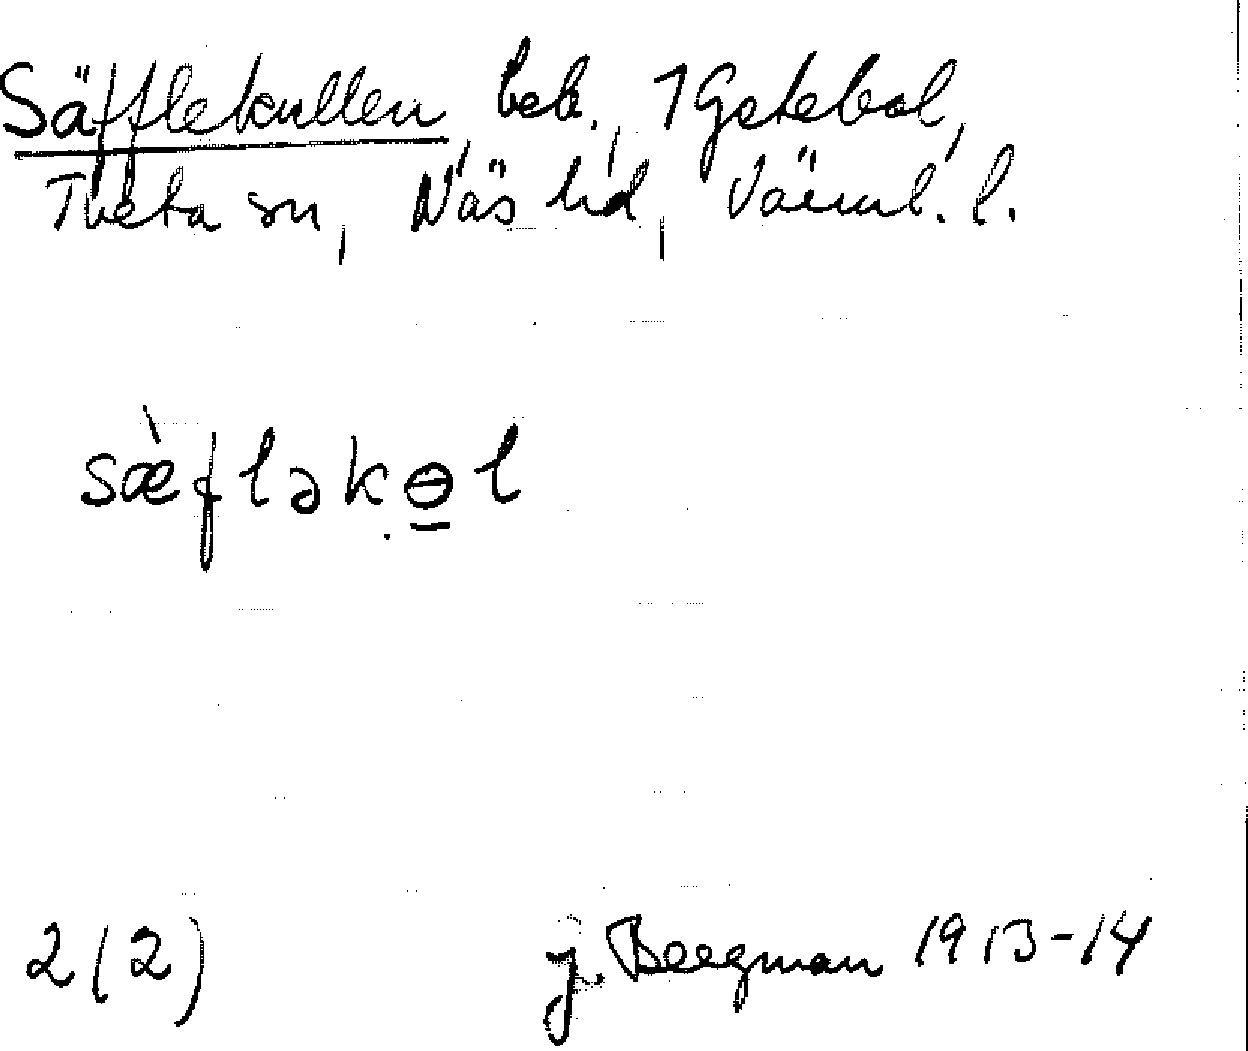 Säfflekullen, beb., 1 Getebol,
Tveta sn, Näs hd, Värml. l.
sæ̀fləkɵ̲l
2(2) J. Bergman 1913-14